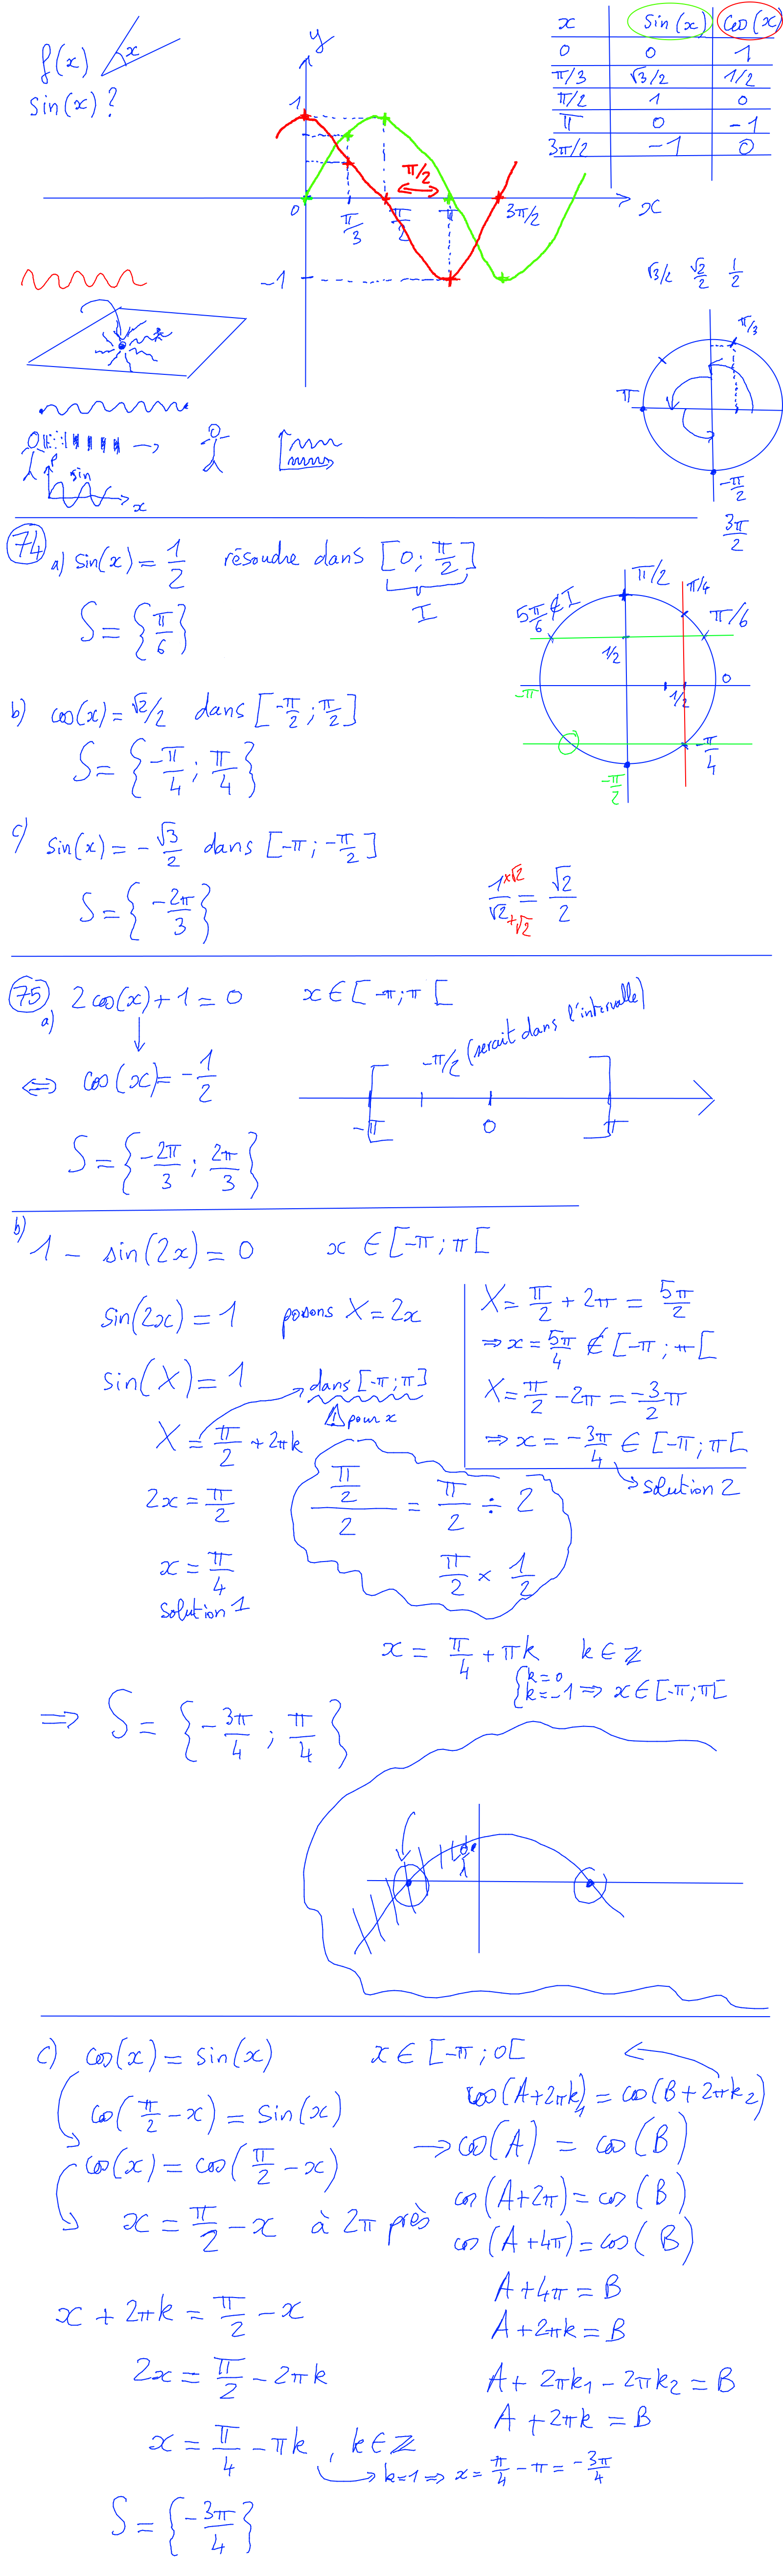 f(x) x
sin(x) ?
y
1
π/2
0 π/3 π/2 π 3π/2 x
-1
x sin(x) cos(x)
0 0 1
π/3 √3/2 1/2
π/2 1 0
π 0 -1
3π/2 -1 0
√3/2 √2/2 1/2
π/3
π
-π/2
3π/2
P sin
x
74 a) sin(x) = 1/2 résoudre dans [0; π/2]
I
S = {π/6}
π/2 π/4
5π/6 ∉ I π/6
1/2
-π 1/2 0
-π/4
-π/2
b) cos(x) = √2/2 dans [-π/2; π/2]
S = {-π/4; π/4}
c) sin(x) = -√3/2 dans [-π; -π/2]
S = {-2π/3}
1×√2/√2×√2 = √2/2
75 a) 2cos(x) + 1 = 0 x ∈ [-π; π[
⇔ cos(x) = -1/2
-π/2 (serait dans l'intervalle)
-π 0 π
S = {-2π/3; 2π/3}
b) 1 - sin(2x) = 0 x ∈ [-π; π[
sin(2x) = 1 posons X = 2x
sin(X) = 1 dans [-π; π]
⚠ pour x
X = π/2 + 2πk
2x = π/2
x = π/4
solution 1
(π/2)/2 = π/2 ÷ 2
π/2 × 1/2
X = π/2 + 2π = 5π/2
⇒ x = 5π/4 ∉ [-π; π[
X = π/2 - 2π = -3/2 π
⇒ x = -3π/4 ∈ [-π; π[
solution 2
x = π/4 + πk k ∈ ℤ
{k = 0
k = -1 ⇒ x ∈ [-π; π[
⇒ S = {-3π/4; π/4}
c) cos(x) = sin(x) x ∈ [-π; 0[
cos(π/2 - x) = sin(x)
cos(x) = cos(π/2 - x)
x = π/2 - x à 2π près
x + 2πk = π/2 - x
2x = π/2 - 2πk
x = π/4 - πk, k ∈ ℤ
k=1 ⇒ x = π/4 - π = -3π/4
S = {-3π/4}
cos(A+2πk₁) = cos(B+2πk₂)
→ cos(A) = cos(B)
cos(A+2π) = cos(B)
cos(A+4π) = cos(B)
A+4π = B
A+2πk = B
A + 2πk₁ - 2πk₂ = B
A + 2πk = B